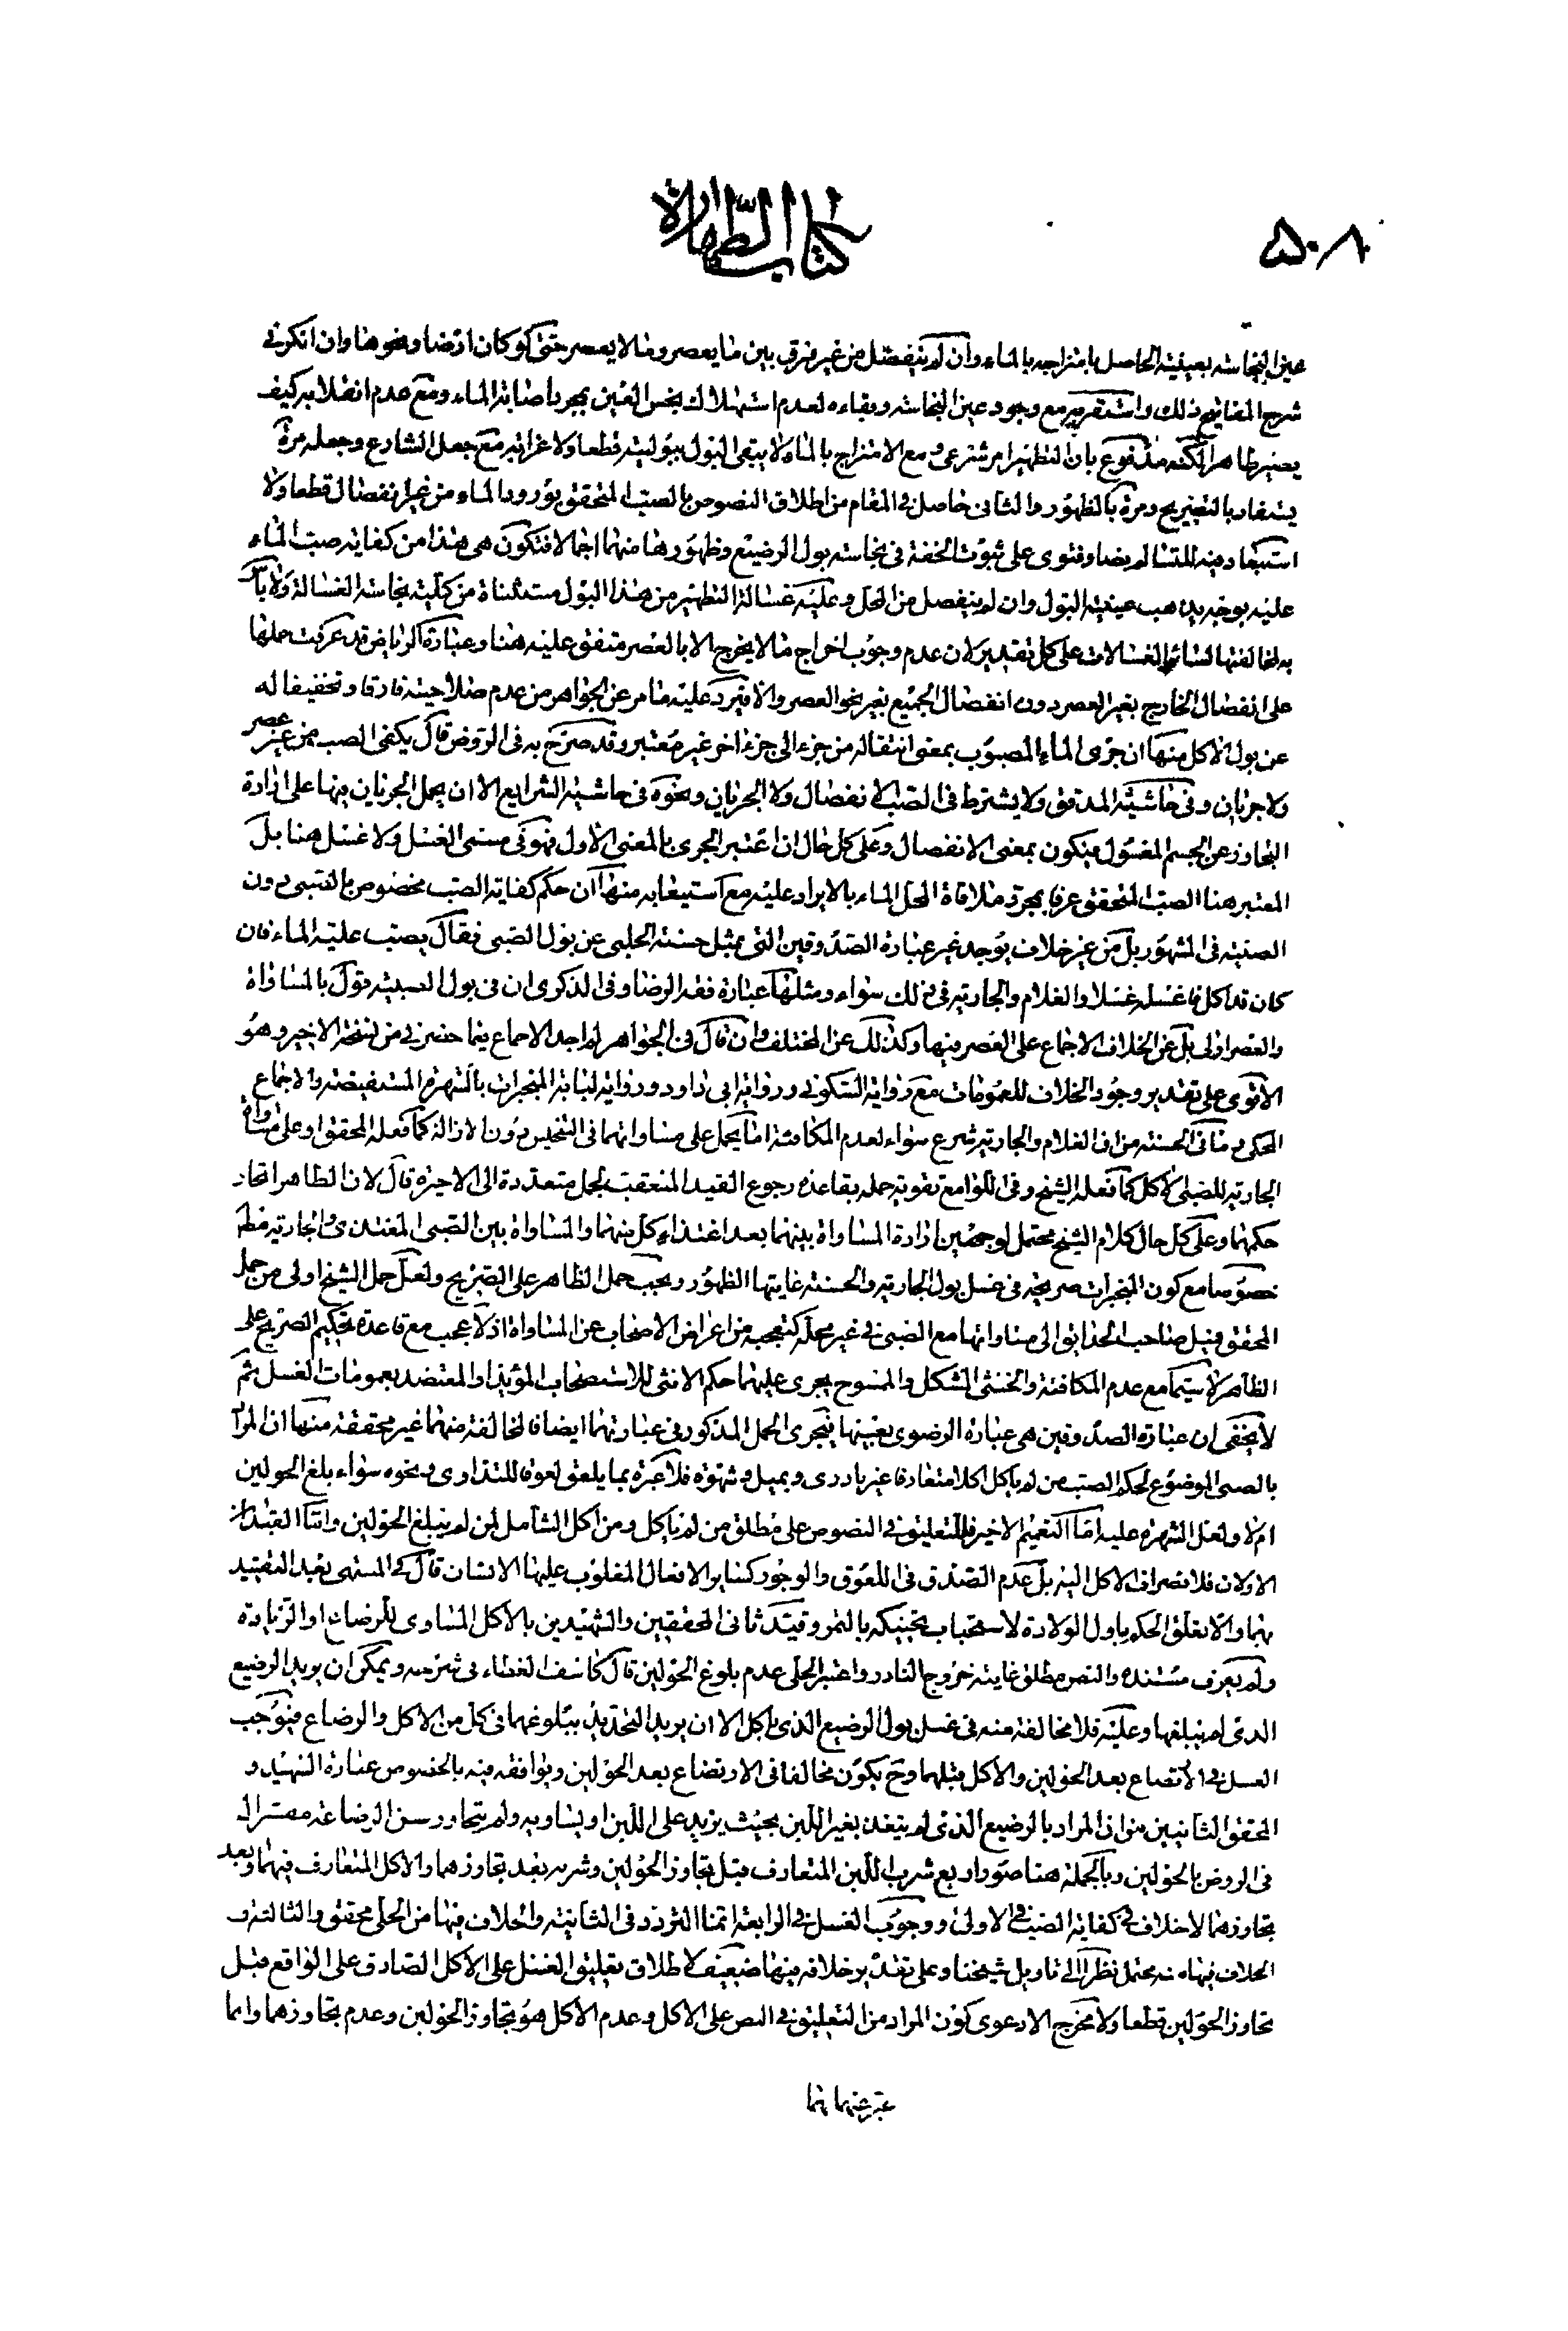 ۵۰۸
كتاب الطهارة
عين النجاسة بعينيته الحاصل بامتزاجه بالماء وان لم ينفصل من غير فرق بين ما يعصر وما لا يعصر حتى لو كان ارضا ونحوها وان انكر في
شرح المفاتيح ذلك واستقر به مع وجود عين النجاسة وبقاءه لعدم استهلاك نجس العين بمجرد اصابة الماء ومع عدم انفصاله كيف
يصير طاهرا لكنه مدفوع بان التطهير امر شرعي ومع الامتزاج بالماء لا يبقى البول ببوليته قطعا ولا غرابة مع جعل الشارع وجعله مرة
يستفاد بالتصريح ومرة بالظهور والثاني حاصل في المقام من اطلاق النصوص بالصب المتحقق بورود الماء من غير انفصال قطعا ولا
استبعاد فيه للتسالم نصا وفتوى على ثبوت الخفة في نجاسة بول الرضيع وظهورها منهما اجمالا فتكون هي هذا من كفاية صب الماء
عليه بوجه يذهب عينية البول وان لم ينفصل من المحل وعليه غسالة التطهير من هذا البول مستثناة من كلية نجاسة الغسالة ولا باس
به لمخالفتها لسائر الغسالات على كل تقدير لان عدم وجوب اخراج ما لا يخرج الا بالعصر متفق عليه هنا وعبارة الرياض قد عرفت حملها
على انفصال الخارج بغير العصر دون انفصال الجميع بغير نحو العصر والا فيرد عليه ما مر عن الجواهر من عدم صلاحيته فارقا وتخفيفا له
عن بول الاكل منها ان جرى الماء المصبوب بمعنى انتقاله من جزء الى جزء اخر غير معتبر وقد صرح به في الروض قال يكفي الصب من غير عصر
ولا جريان وفي حاشية المدقق ولا يشترط في الصب الانفصال ولا الجريان ونحوه في حاشية الشرايع الا ان يحمل الجريان فيها على ارادة
التجاوز عن الجسم المغسول فيكون بمعنى الانفصال وعلى كل حال ان اعتبر الجرى بالمعنى الاول فهو في مسمى الغسل ولا غسل هنا بل
المعتبر هنا الصب المتحقق عرفا بمجرد ملاقاة المحل الماء بالايراد عليه مع استيعابه منها ان حكم كفاية الصب مخصوص بالصبي دون
الصبية في المشهور بل من غير خلاف يوجد غير عبارة الصدوقين التي بمثل حسنة الحلبي عن بول الصبي فقال يصب عليه الماء فان
كان قد اكل فاغسله غسلا والغلام والجارية في ذلك سواء ومثلها عبارة فقه الرضا وفي الذكرى ان في بول الصبية قول بالمساواة
والعصر اولى بل عن الخلاف الاجماع على العصر فيها وكذلك عن المختلف وان قال في الجواهر لم اجد الاجماع فيما حضرني من نسخة الاخير وهو
الاقوى على تقدير وجود الخلاف للعمومات مع رواية السكوني ورواية ابي داود ورواية لبابة المنجبرات بالشهرة المستفيضة والاجماع
المحكي وما في الحسنة من ان الغلام والجارية شرع سواء لعدم المكافئة اما يحمل على مساواتهما في التنجيس دون الازالة كما فعله المحقق او على مساواة
الجارية للصبي الاكل كما فعله الشيخ وفي اللوامع تقوية حمله بقاعدة رجوع القيد المتعقب لجمل متعددة الى الاخيرة قال لان الظاهر اتحاد
حكمهما وعلى كل حال كلام الشيخ محتمل لوجهين ارادة المساواة بينهما بعد اغتذاء كل منهما والمساواة بين الصبي المغتذي والجارية مطلقا
خصوصا مع كون المنجبرات صريحة في غسل بول الجارية والحسنة غايتها الظهور ويجب حمل الظاهر على الصريح ولعل حمل الشيخ اولى من حمل
المحقق فميل صاحب الحدائق الى مساواتها مع الصبي في غير محله كتعجبه من اعراض الاصحاب عن المساواة اذ لا عجب مع قاعدة تحكيم الصريح على
الظاهر لا سيما مع عدم المكافئة والخنثى المشكل والممسوح يجرى عليهما حكم الانثى للاستصحاب المؤيد او المعتضد بعمومات الغسل ثم
لا يخفى ان عبارة الصدوقين هي عبارة الرضوي بعينها فيجرى الحمل المذكور في عبارتهما ايضا فالمخالفة منهما غير محققة منها ان المراد
بالصبي الموضوع لحكم الصب من لم ياكل اكلا متعارفا غير نادر ى وبميل وشهوة فلا عبرة بما يلعق لعوقا للتداوي ونحوه سواء بلغ الحولين
ام لا ولعل الشهرة عليه اما التعميم الاخير فللتعليق في النصوص على مطلق من لم ياكل ومن اكل الشامل لمن لم يبلغ الحولين واما القيدان
الاولان فلانصراف الاكل اليه بل عدم الصدق في اللعوق والوجور كساير الافعال المغلوب عليها الانسان قال في المنتهى بعد التقييد
بهما والا تعلق الحكم باول الولادة لاستحباب تحنيكه بالتمر وقيد ثاني المحققين والشهيدين بالاكل المساوي للرضاع او الزيادة
ولم يعرف مستنده والنص مطلق غايته خروج النادر واعتبر الحلي عدم بلوغ الحولين قال كاشف الغطاء في شرحه ويمكن ان يريد الرضيع
الذي لم يبلغها وعليه فلا مخالفة منه في غسل بول الرضيع الذي ياكل الا ان يريد التحديد ببلوغهما في كل من الاكل والرضاع فيوجب
الغسل في الارتضاع بعد الحولين والاكل قبلهما وح يكون مخالفا في الارتضاع بعد الحولين ويوافقه فيه بالخصوص عبارة الشهيد و
المحقق الثانيين من ان المراد بالرضيع الذي لم يتغذ بغير اللبن بحيث يزيد على اللبن او يساويه ولم يتجاوز سن الرضاعة مفسرا له
في الروض بالحولين وبالجملة هنا صور اربع شرب اللبن المتعارف قبل تجاوز الحولين وشربه بعد تجاوزهما والاكل المتعارف فيهما وبعد
تجاوزهما لا خلاف في كفاية الصب في الاولى ووجوب الغسل في الرابعة انما التردد في الثانية والخلاف فيها من الحلي محقق والثالثة و
الخلاف فيها منه محتمل نظرا الى تاويل شيخنا وعلى تقدير خلافه فيها ضعيف لاطلاق تعليق الغسل على الاكل الصادق على الواقع قبل
تجاوز الحولين قطعا ولا مخرج الا دعوى كون المراد من التعليق في النص على الاكل وعدم الاكل هو تجاوز الحولين وعدم تجاوزهما وانما
عبر عنهما بهما